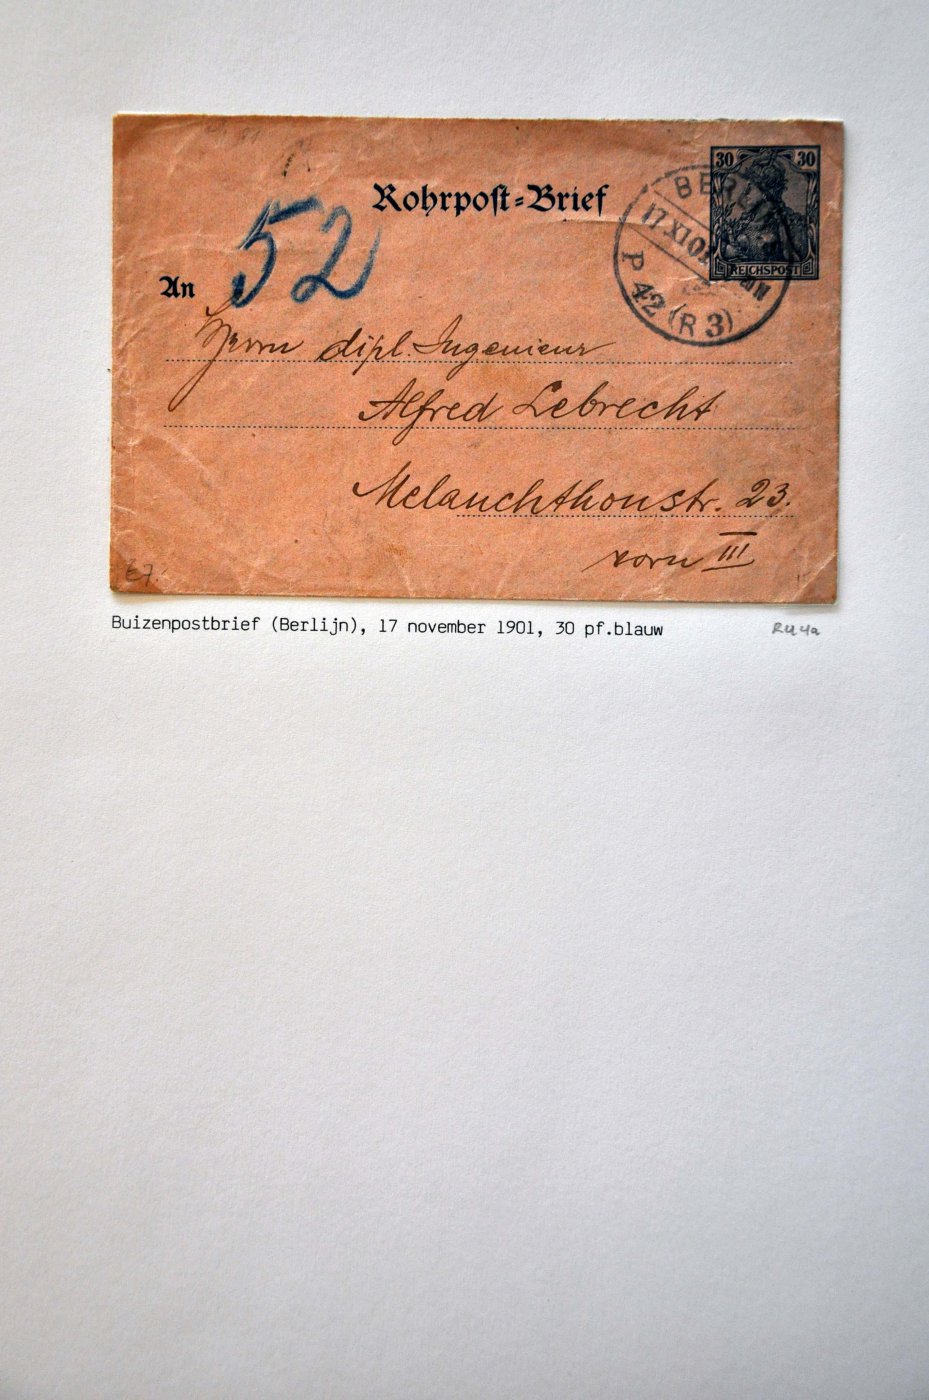 Rohrpost-Brief
30 30
REICHSPOST
BERLIN
17.XI.01
P 42 (R 3)
52
An
Herrn dipl. Ingenieur
Alfred Lebrecht
Melanchthonstr. 23.
vorn III
Buizenpostbrief (Berlijn), 17 november 1901, 30 pf.blauw